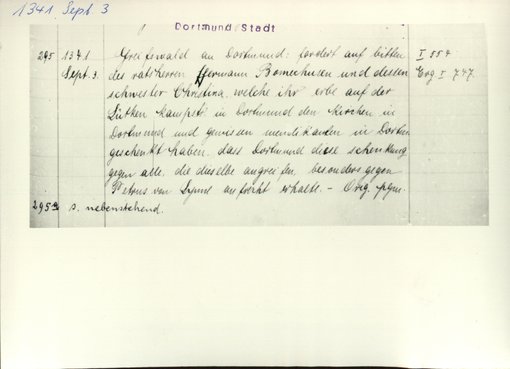 1341. Sept. 3
Dortmund Stadt
295 1341 Greifswald an Dortmund: fordert auf bitten I 554
Sept. 3. des ratsherren Hermann Bomechusen und dessen Erg I 747.
schwester Christina, welche ihr erbe auf der
Lütken kampstr in Dortmund den Kirchen in
Dortmund und gewissen mendikanten in Dortm
geschenkt haben, dass Dortmund diese schenkung
gegen alle, die dieselbe angreifen, besonders gegen
Petrus von aufrecht erhalte. - Orig. pgm.
295a s. nebenstehend.